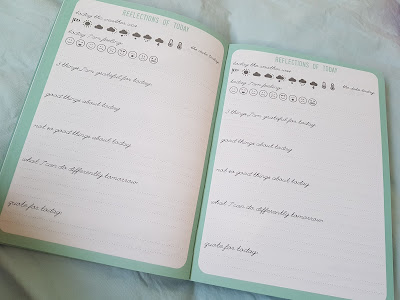 REFLECTIONS OF TODAY
today the weather was
the date today
today I'm feeling
3 things I'm grateful for today
good things about today
not so good things about today
what I can do differently tomorrow
quote for today
REFLECTIONS OF TODAY
today the weather was
the date today
today I'm feeling
3 things I'm grateful for today
good things about today
not so good things about today
what I can do differently tomorrow
quote for today